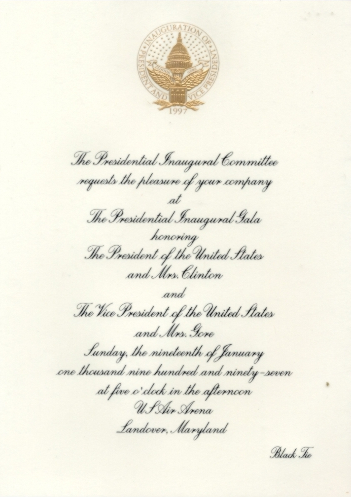 INAUGURATION OF
PRESIDENT AND
VICE PRESIDENT
1997
The Presidential Inaugural Committee
requests the pleasure of your company
at
The Presidential Inaugural Gala
honoring
The President of the United States
and Mrs. Clinton
and
The Vice President of the United States
and Mrs. Gore
Sunday, the nineteenth of January
one thousand nine hundred and ninety-seven
at five o'clock in the afternoon
US Air Arena
Landover, Maryland
Black Tie